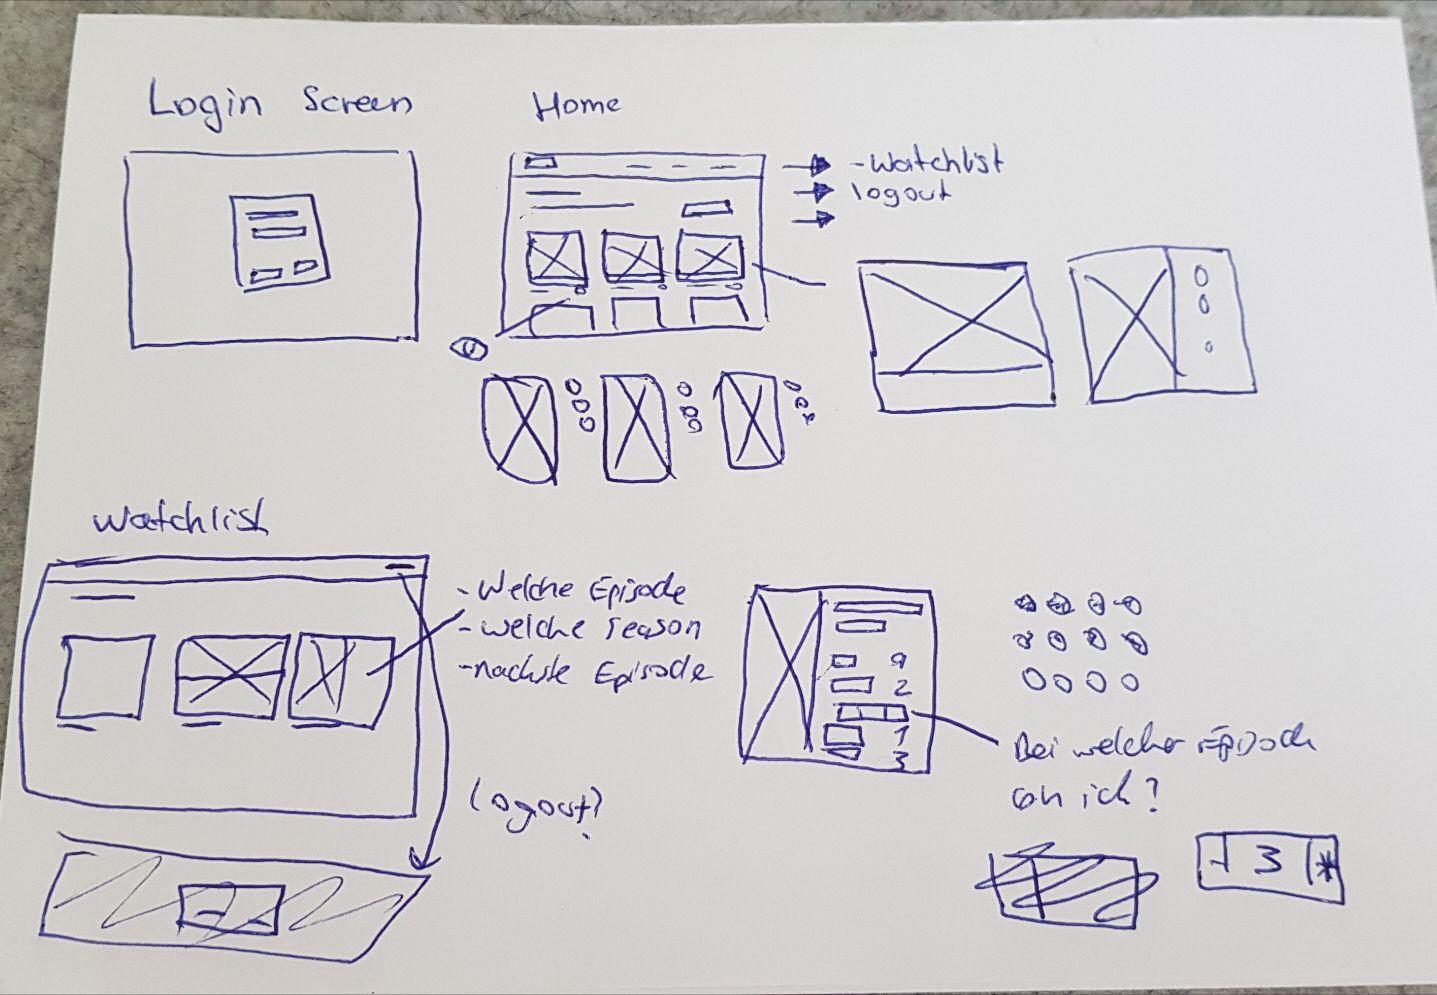 Login Screen
Home
-Watchlist
logout
Watchlist
-Welche Episode
-welche season
-nächste Episode
9
2
1
3
Bei welcher Episode
bin ich?
logout?
3